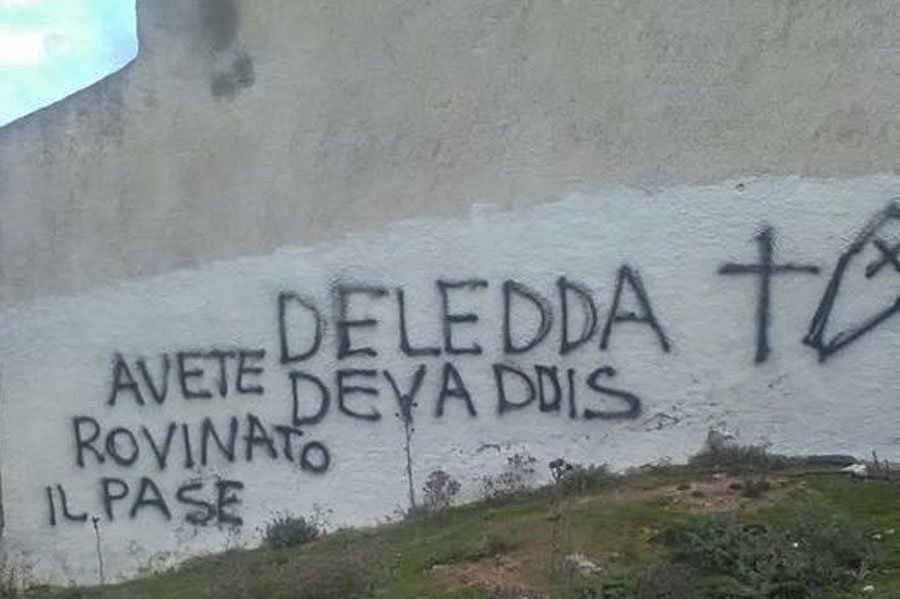 DELEDDA
DEVADDIS
AVETE
ROVINATO
IL PASE